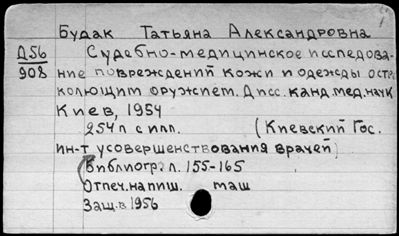 Будак Татьяна Александровна
Д56
908
Судебно-медицинское исследова-
ние повреждений кожи и одежды остро
колющим оружием. Дисс. канд. мед. наук
Киев, 1954
254 л с илл. (Киевский Гос.
ин-т усовершенствования врачей)
Библиогр: л. 155-165
Отпеч. на пиш. маш
Защ. в 1956